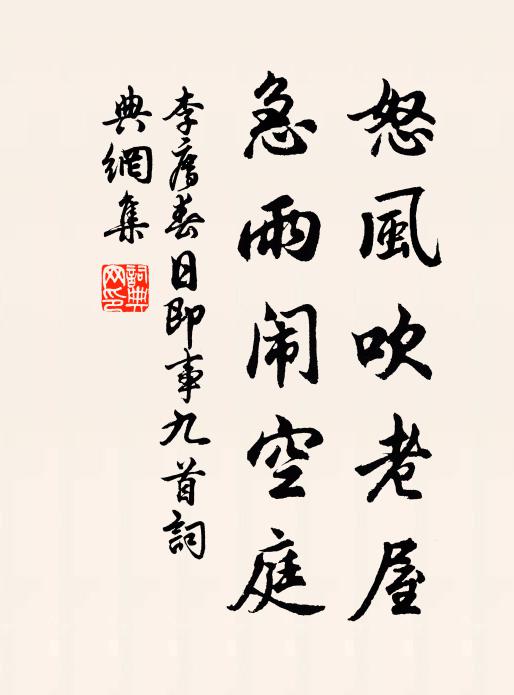 怒風吹老屋
急雨闹空庭
李廌春日即事九首詞
典網集
詞典网印